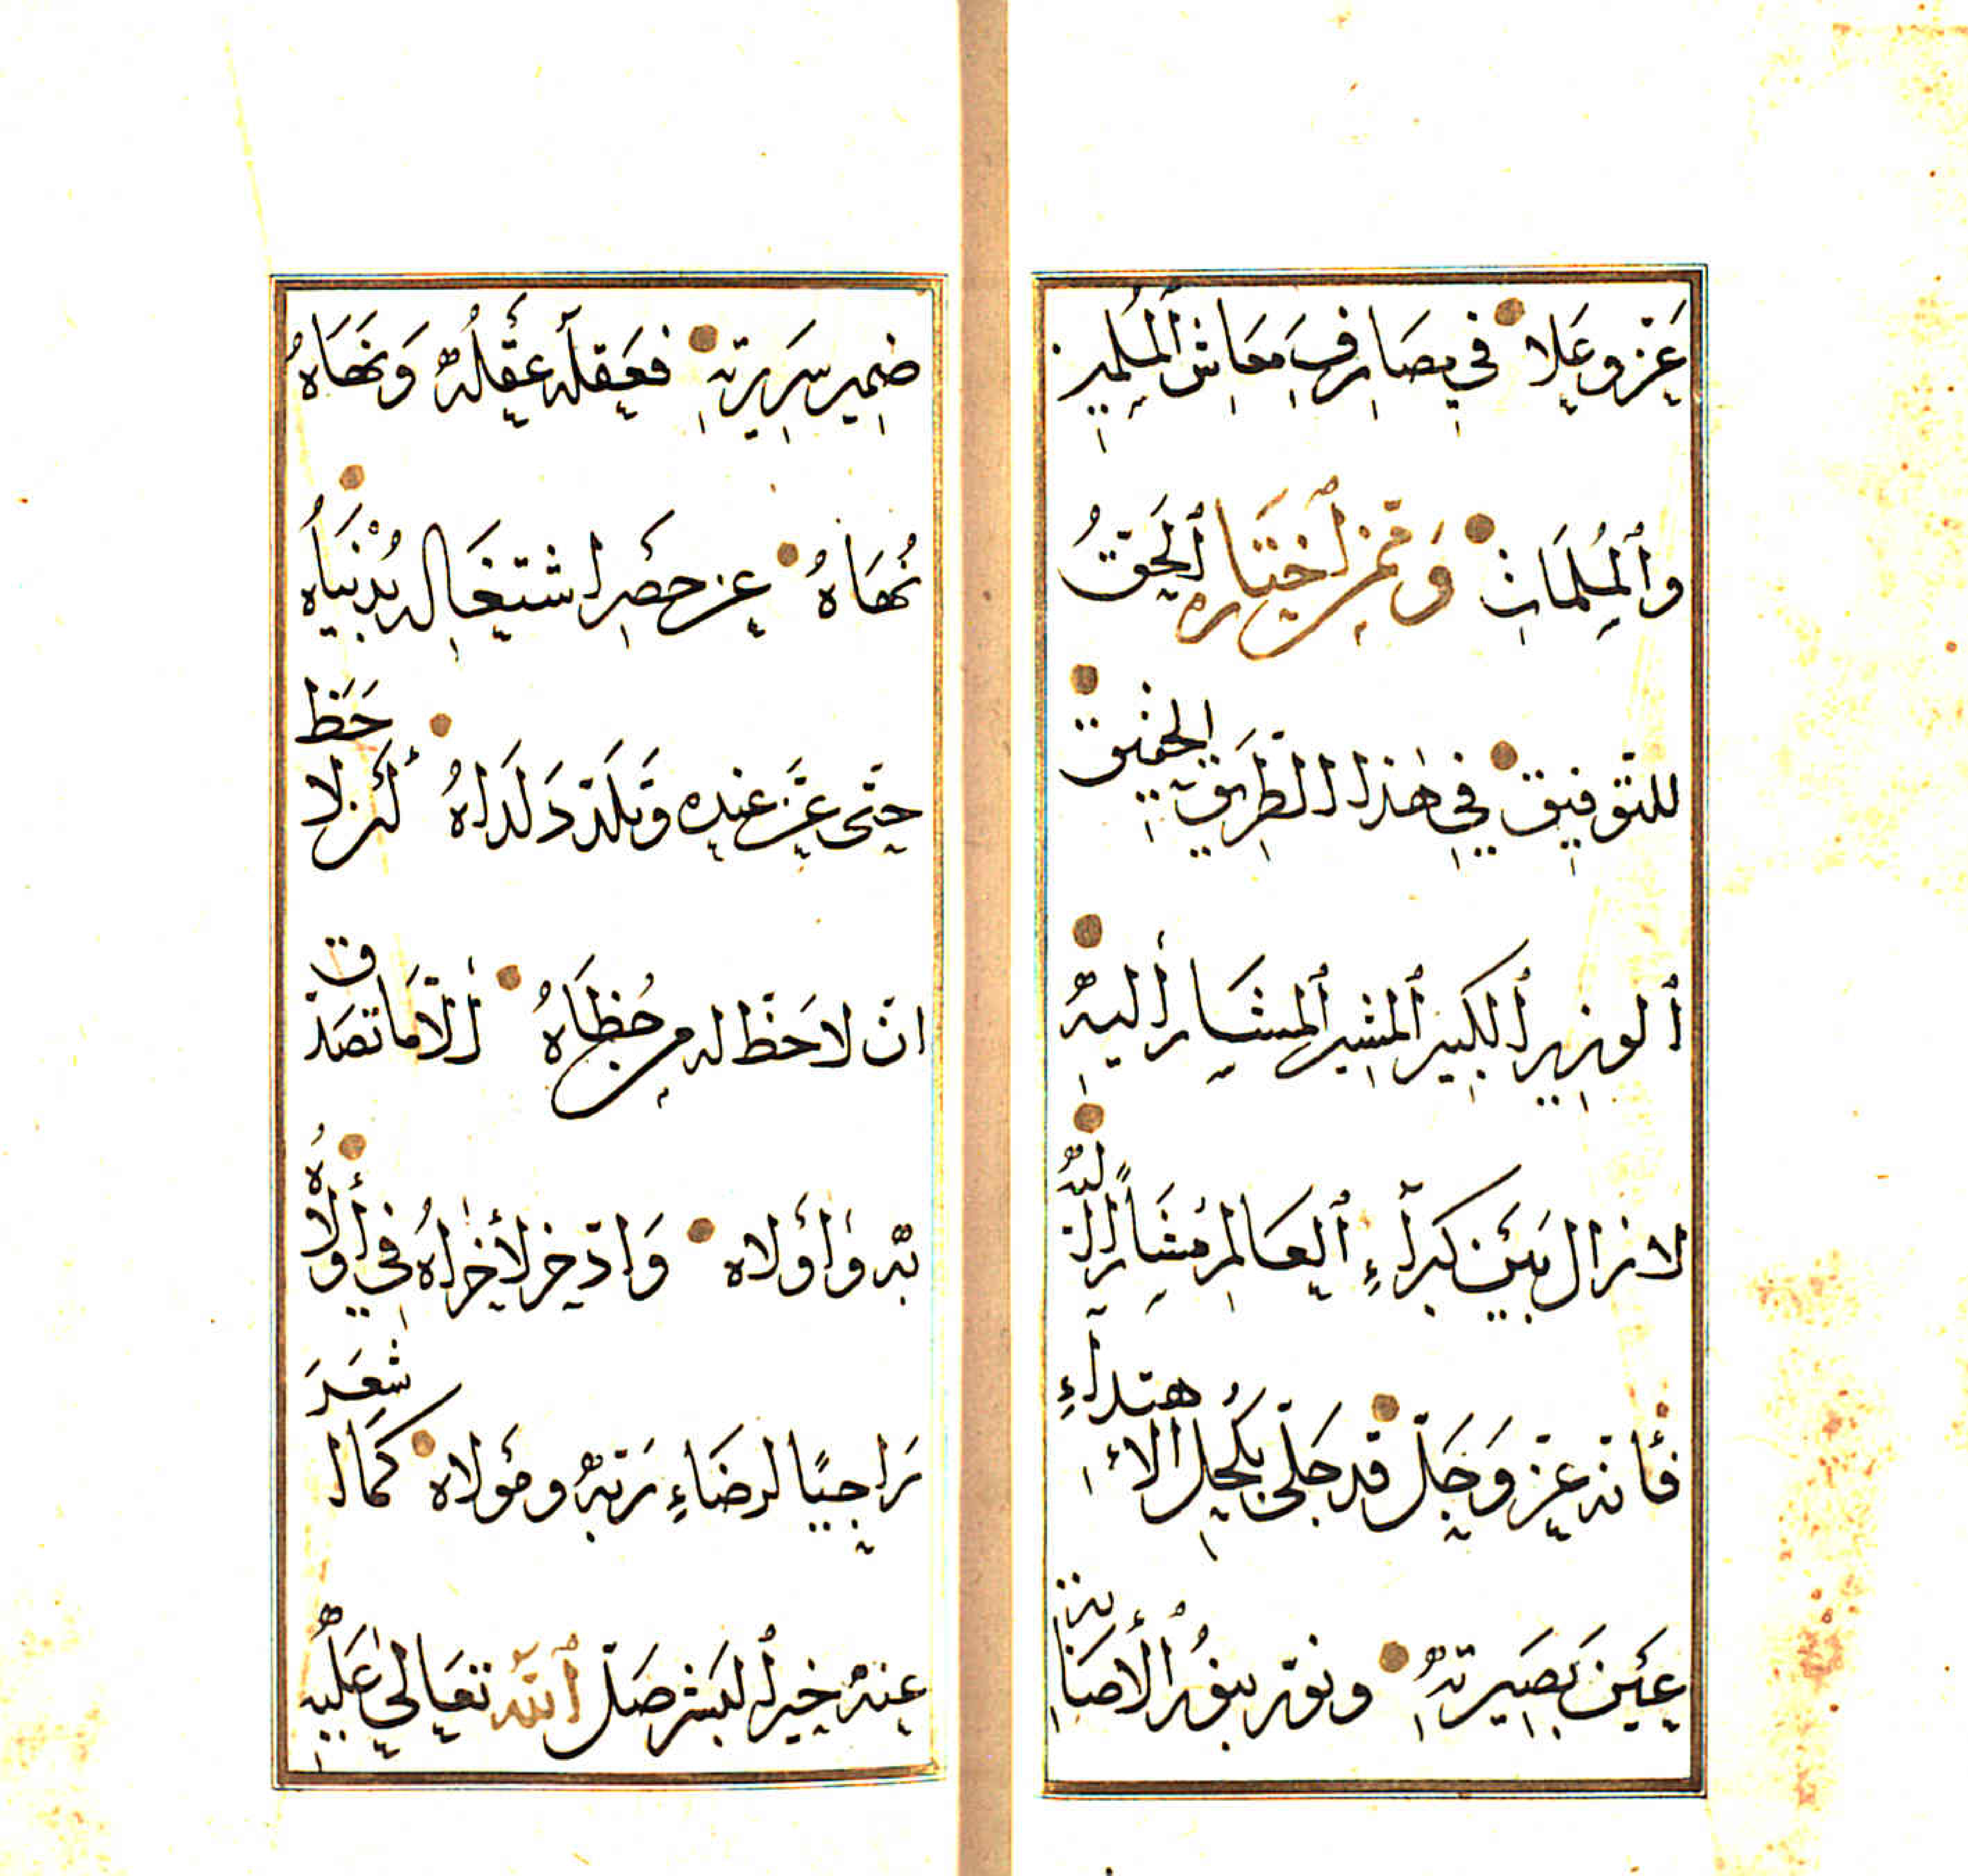 عَزّ وعَلا في مصَارفِ مَعَاش ٱلمُسلِمين
وٱلمُسلِمَات وَممّن ٱختَاره ٱلحَقّ
للتّوفيق في هٰذا الطّرَيق الحَقيق
ٱلوزير ٱلكَبير ٱلمشير ٱلمشَار إليهِ
لا زال بَين كبرآءِ ٱلعَالم مُشَاراً إليهِ
فأنّه عَزّ وَجَلّ قد جَلّى بكُحل الاهتدآءِ
عَين بَصِيرتهِ ونوّر بنُور ٱلأصَابة
ضمِير سَرِيرتهِ فعَقلهُ عَقْلُهُ وَنهَاهُ
نُهَاهُ عن حَصَر اشتغَاله بدُنْيَاهُ
حتّى عَنَّ عنده وتَلَدّدَ لَدَاهُ أن لا حَظ
انّ لا حَظّ له من حُظَاهُ إلّا مَا تصَدّق
بهِ وٰاوَلاه وَادّخر لأُخرٰاهُ في أولاهُ
رَاجيًا لرضَاءِ رَبّهِ ومَولاه كمَا أشعَرَ
عنهُ خير ٱلبَشر صَلّى ٱللّٰه تعَالى عَليْهِ